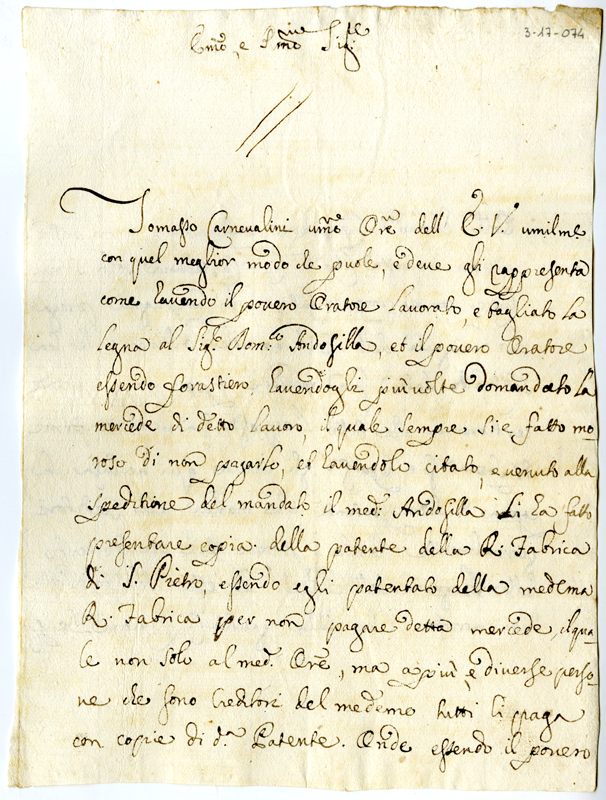 3-17-074
Em̃o, e R̃mo Sig.re
Tomasso Carnevalini um̃e Or̃e dell E. V. umilm.e
con quel meglior modo che puole, e deve gli rappresenta
come havendo il povero Oratore Lavorato, e tagliato La
Legna al Sig.r Dom.co Andosilla, et il povero Oratore
essendo forastiero, havendogli più volte domandato la
mercede di detto Lavoro, il quale sempre si e fatto mo-
roso di non pagarlo, et havendolo citato, e venuto alla
speditione del mandato il med.o Andosilla li ha fatto
presentare copia della patente della R. Fabrica
di S. Pietro, essendo egli patentato della medema
R. Fabrica per non pagare detta mercede, il qua-
le non solo al med.o Or̃e, ma a più, e diverse perso-
ne che sono Creditori del medemo tutti li paga
con copie di d.a Patente. Onde essendo il povero